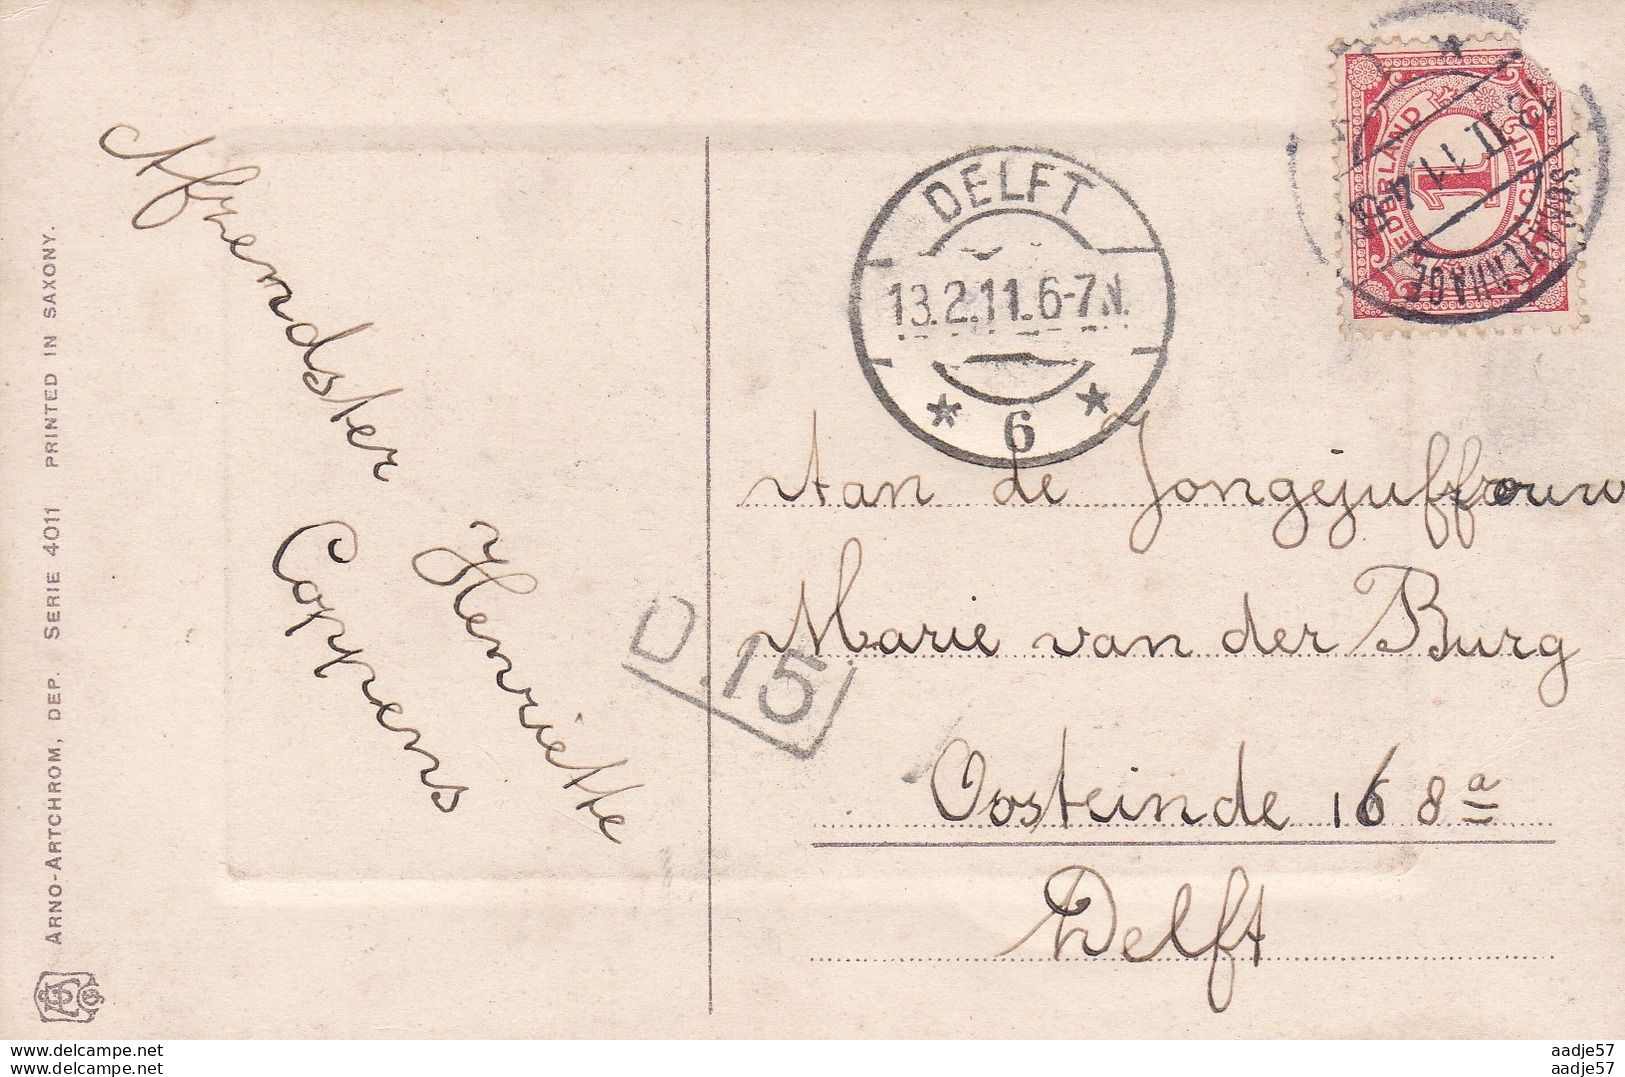 Afzendster
Henriette
Coppens
ARNO-ARTCHROM, DEP. SERIE 4011 PRINTED IN SAXONY.
DELFT
13.2.11.6-7N.
* 6 *
D.15
NEDERLAND
1
CENT
13 II 11
Aan de Jongejuffrouw
Marie van der Burg
Oosteinde 168a
Delft
www.delcampe.net
www.delcampe.net
aadje57
aadje57